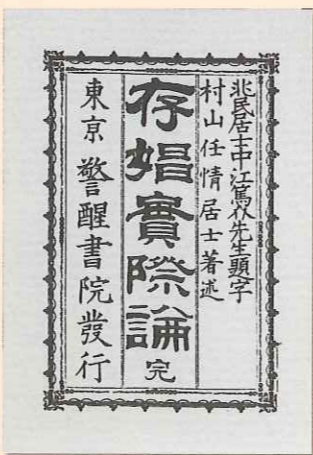 兆民居士中江篤介先生題字
村山任情居士著述
存娼實際論 完
東京 警醒書院發行